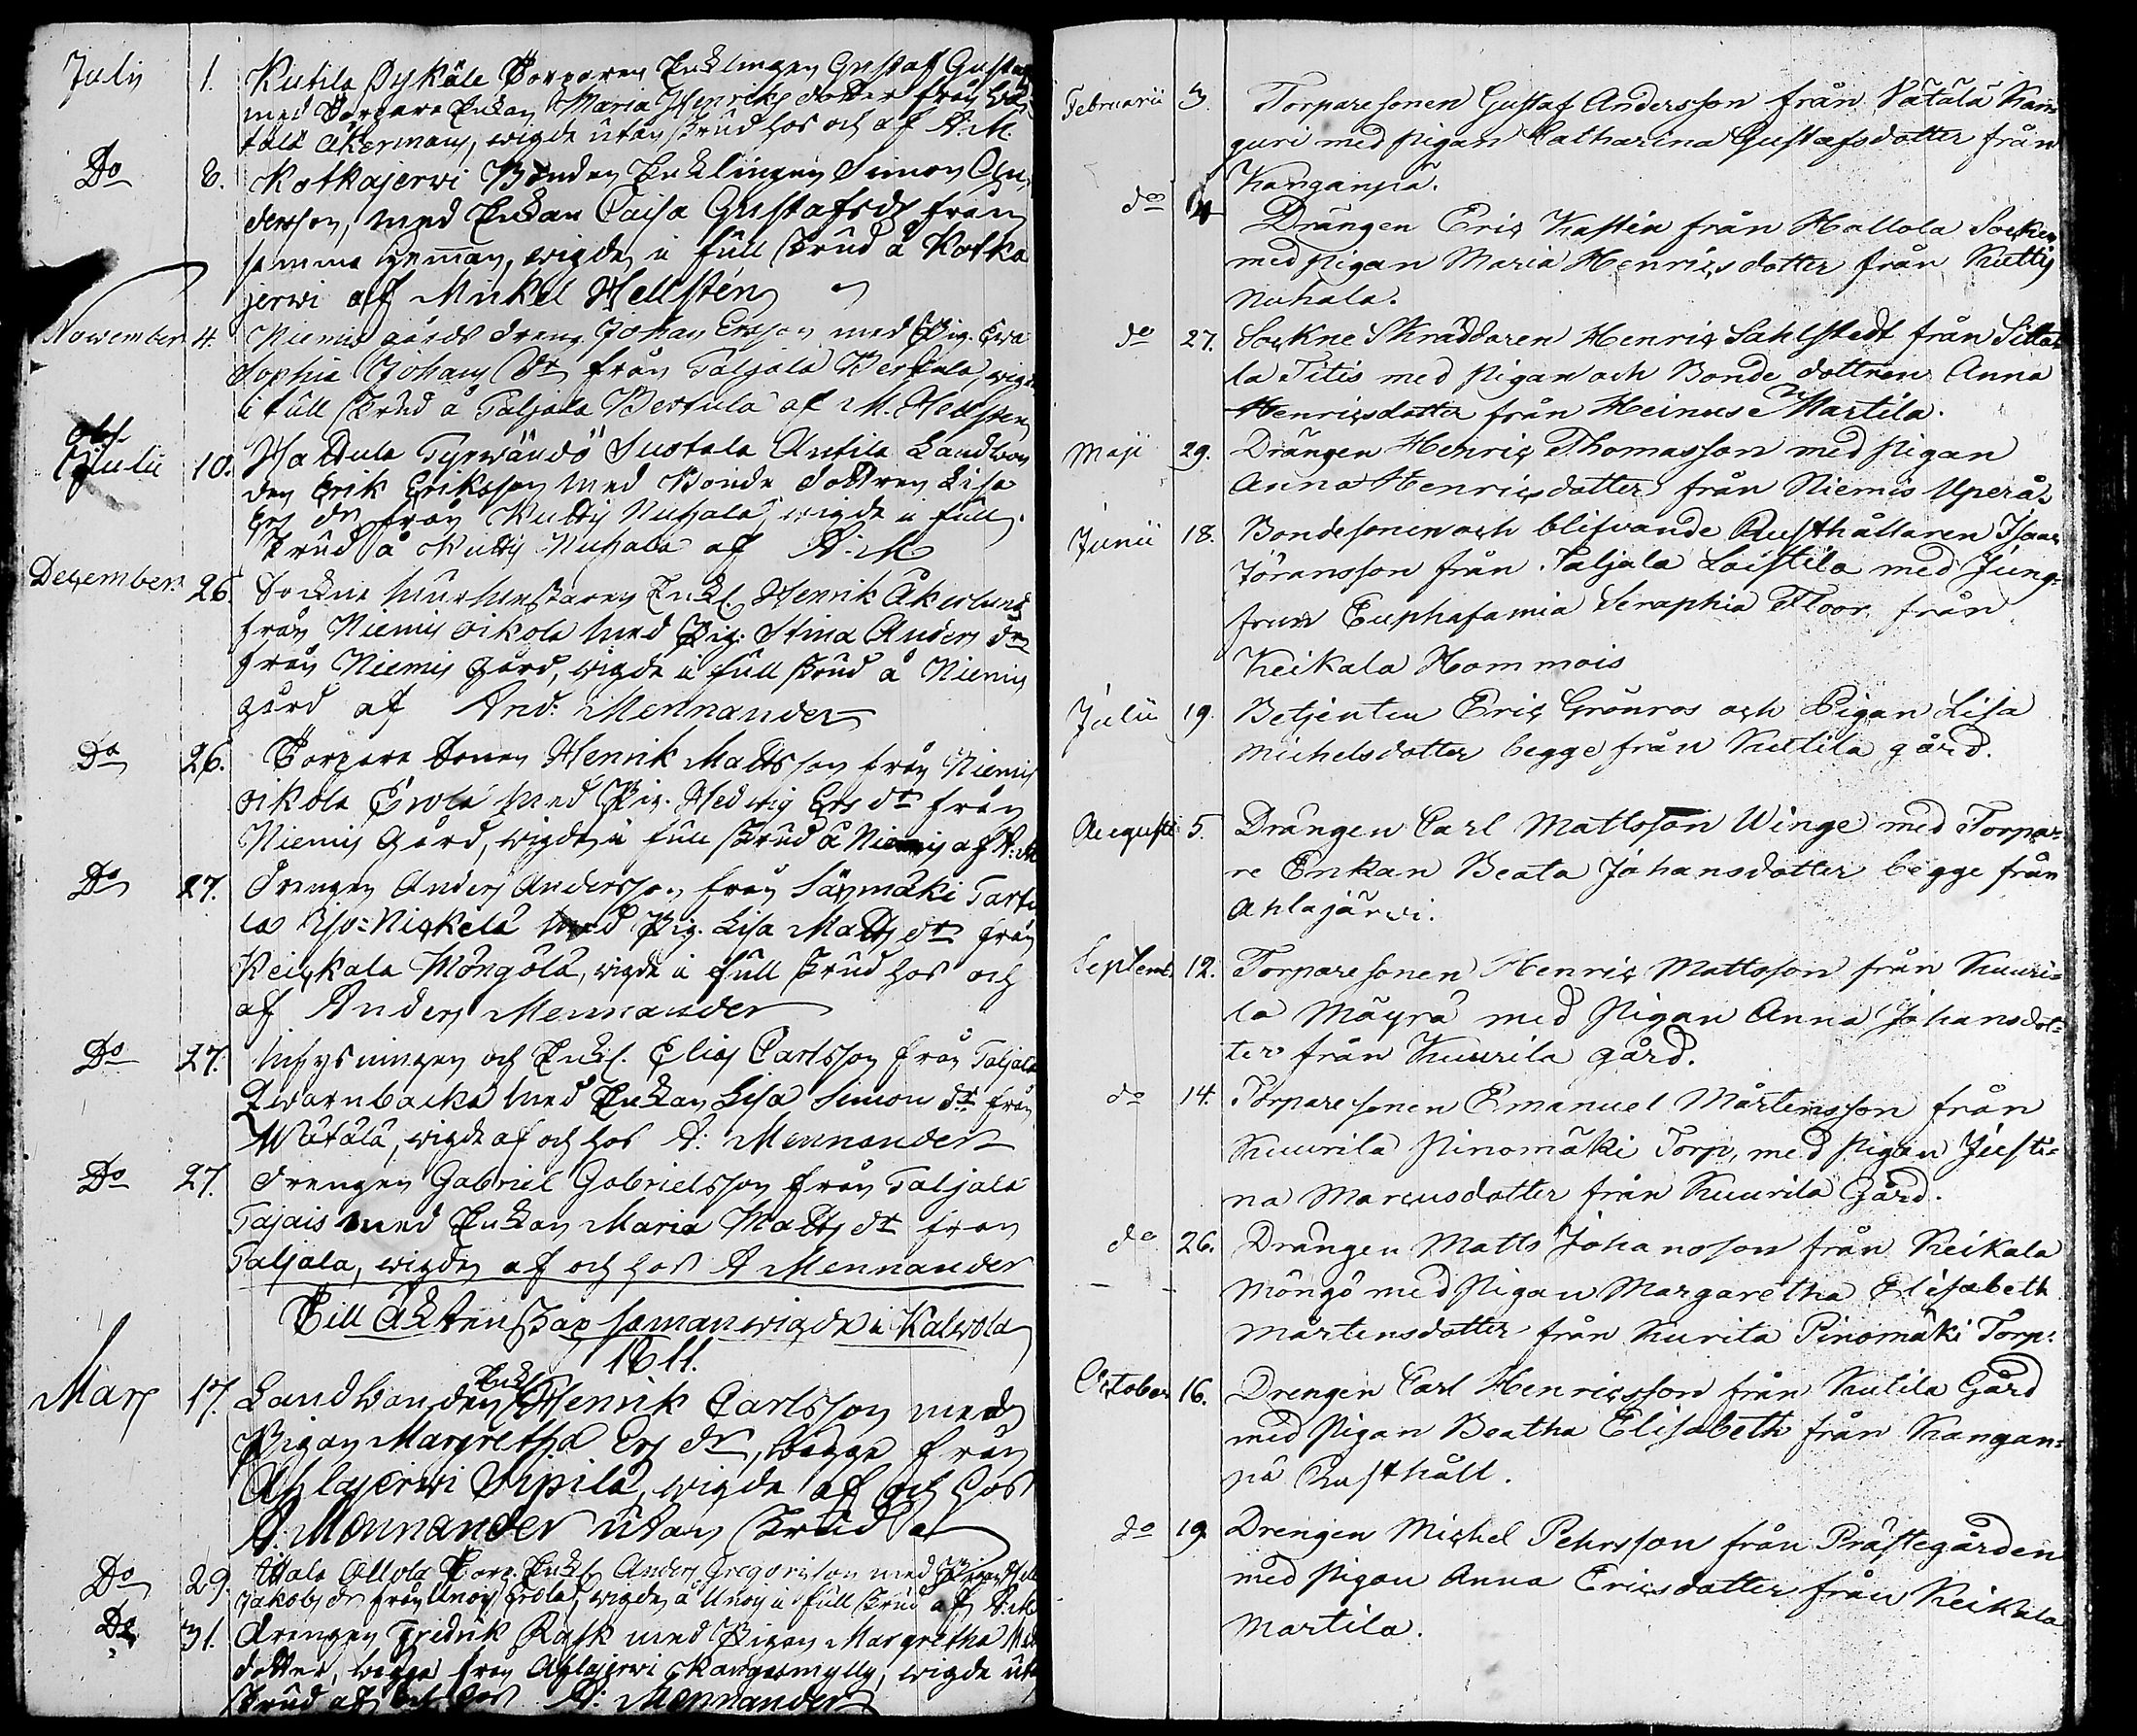 Julij 1. Kutila Pykäle Torparen Enklingen Gustaf Gustaf
med Torpare Enkan Maria Henriks dotter från Wä
tälä Åkermans, wigde utan skrud hos och af A. M.
Do 8. Kotkajerwi Bonden Enklingen Simon An
dersson, med Enkan Caisa Gustafsdr från
samma hemman, wigde i full skrud å Kotka
jerwi af Mickel Hellstén
November 4. Niemis gårds dreng Johan Ersson med Pig. Ewa
Sophia Johans dr från Taljala Bertula, wigde
i full skrud å Taljala Bertula af M. Hellsten
Julii 10. Hattula Tyrwändö Suotala Antila Landbon
den Erik Eriksson med Bonde dottren Lisa
Ers dr från Kutty Nuhala, wigde i full
skrud å Kutty Nuhala af A. M
December 26. Sockne murmestaren Enkl. Henrik Åkerlund
från Niemis Oikola med Pig. Stina Anders dr
från Niemis Gård, wigde i full skrud å Niemis
gård af And: Mennander
Do 26. Torpare Sonen Henrik Mattsson från Niemis
Oikola Erola med Pig. Hedwig Ers dr från
Niemis Gård, wigde i full skrud å Niemis af A: M
Do 27. Drengen Anders Andersson från Säxmäki Tarti
la Yso=Nickela med Pig. Lisa Matts dr från
Keickala Möngölä, wigde i full skrud hos och
af Anders Mennander
Do 27. Inhysningen och Enkl. Elias Carlsson från Taljala
Qwarnbacka med Enkan Lisa Simons dr från
Wätälä, wigde af och hos A: Mennander
Do 27. Drengen Gabriel Gabrielsson från Taljala
Tajais med Enkan Maria Matts dr från
Taljala, wigde af och hos A Mennander
Till Äktenskap samanwigde i Kalwola
1811.
Enkl
Mars 17. Landbonden Henrik Carlsson med
Pigan Margretha Ers dr, begge från
Ahlajerwi Sipilä, wigde af och hos
A. Mennander utan skrud
Do 29. Ollola Torp. Enkl. Anders Gregorisson med Pigan
Jakobs dr från Unois Erola, wigde å Unois i full skrud af A: M
Do 31. Drengen Fredrik Rask med Pigan Margretha
dotter, begge från Ahlajerwi Kangasmylly, wigde utan
skrud af och hos A: Mennander
Februarii 3. Torparesonen Gustaf Andersson från Vätälä Kan
guri med pigan Catharina Gustafsdotter från
Kanganpä.
do 4 Drängen Eric Kastén från Hollola Socken
med pigan Maria Henricsdotter från Kutty
Nuhala.
do 27. Sockne Skräddaren Henric Sahlstedt från Sitta
la Titis med pigan och Bonde dottren Anna
Henricsdotter från Heinuse Martila.
Maji 29. Drängen Henric Thomasson med pigan
Anna Henricsdotter från Niemis Yperä.
Junii 18. Bondesonen och blifvande Rusthållaren Isaac
Jöransson från Taljala Loistila med Jung=
frun Euphafamia Seraphia Floor från
Keikala Hommois
Julii 19. Betjenten Eric Grönros och Pigan Lisa
Michelsdotter begge från Kutila gård.
Augusti 5. Drängen Carl Mattsson Winge med Torpa=
re Enkan Beata Johansdotter begge från
Ahlajärvi.
Septemb. 12. Torparesonen Henric Mattsson från Kuuri=
la Mäyrä med pigan Anna Johansdot=
ter från Kuurila gård.
do 14. Torparesonen Emanuel Mårtensson från
Kuurila Pinomäki Torp, med pigan Justi=
na Marcusdotter från Kuurila Gård.
do 26. Drängen Matts Johansson från Keikala
Möngö med pigan Margaretha Elisabeth
Mårtensdotter från Kurila Pinomäki Torp.
October 16. Drengen Carl Henricsson från Kutila Gård
med pigan Beatha Elisabeth från Kangan=
pä Rusthåll.
do 19 Drengen Michel Pehrsson från Prästegården
med pigan Anna Ericsdotter från Keikala
Martila.